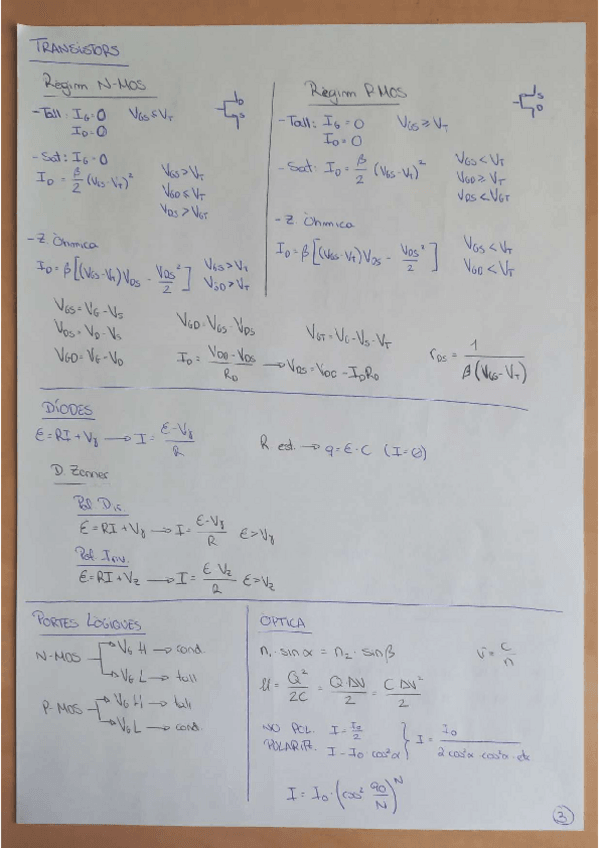 TRANSISTORS
Règim N-MOS
-Tall: I_G = 0 V_GS ≤ V_T
I_D = 0
-Sat: I_G = 0
I_D = β/2 (V_GS - V_T)² V_GS > V_T
V_GD ≤ V_T
V_DS > V_GT
- Z Òhmica
I_D = β[(V_GS - V_T)V_DS - V_DS²/2] V_GS > V_T
V_GD > V_T
D
S
Règim PMOS
-Tall: I_G = 0 V_GS ≥ V_T
I_D = 0
-Sat: I_D = β/2 (V_GS - V_T)² V_GS < V_T
V_GD ≥ V_T
V_DS < V_GT
- Z Òhmica
I_D = β[(V_GS - V_T)V_DS - V_DS²/2] V_GS < V_T
V_GD < V_T
S
D
V_GS = V_G - V_S
V_DS = V_D - V_S
V_GD = V_G - V_D
V_GD = V_GS - V_DS
I_D = (V_DD - V_DS)/R_D → V_DS = V_DC - I_D R_D
V_GT = V_G - V_S - V_T
r_DS = 1/(β(V_GS - V_T))
DÍODES
ε = RI + Vγ → I = (ε - Vγ)/R R est. → q = ε·C (I = 0)
D. Zenner
Pol Dir.
ε = RI + Vγ → I = (ε - Vγ)/R ε > Vγ
Pol Inv.
ε = RI + V_Z → I = (ε V_Z)/2 ε > V_Z
PORTES LÒGIQUES
N-MOS → V_G H → cond.
→ V_G L → tall
P-MOS → V_G H → tall
→ V_G L → cond.
ÒPTICA
n₁ · sin α = n₂ · sin β v = c/n
U = Q²/2C = Q·ΔV/2 = C ΔV²/2
NO POL. I = I₀/2
POLARITZ. I = I₀ cos²α
I = I₀/(2 cos²α · cos²α · etc
I = I₀ · (cos² 90/N)^N
3